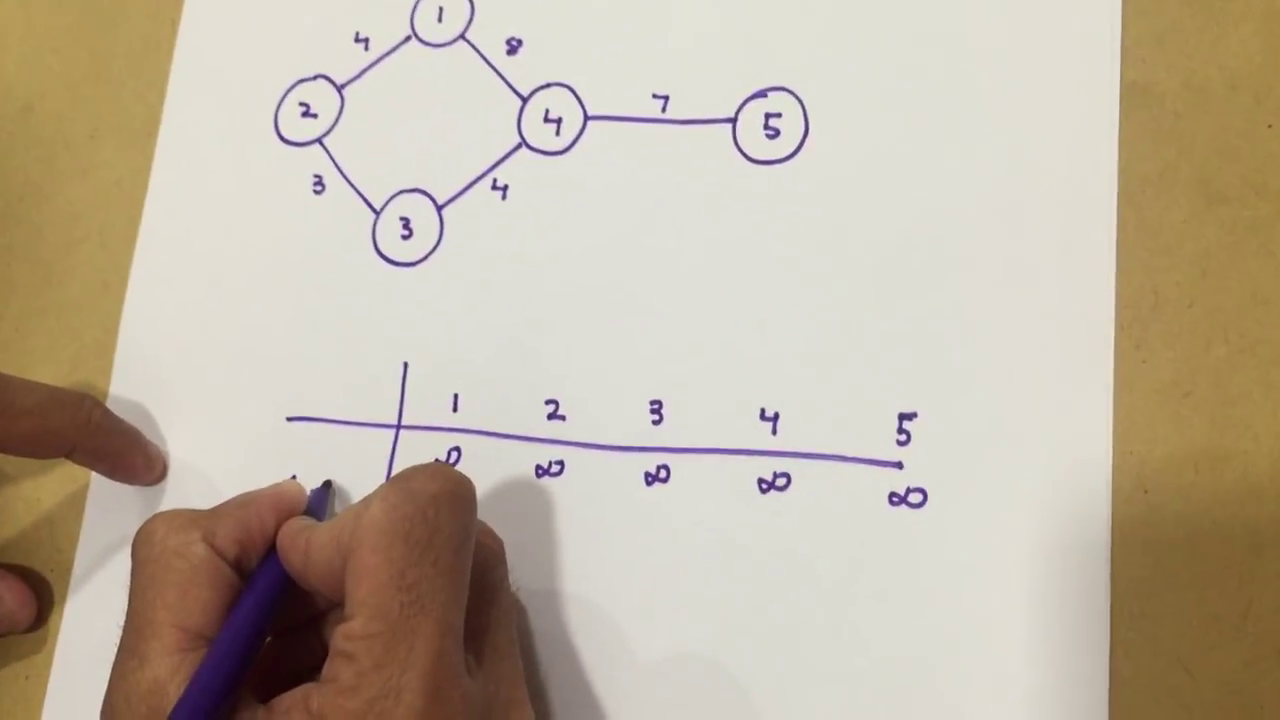 1
4 8
2 4 7 5
3 4
3
1 2 3 4 5
∞ ∞ ∞ ∞ ∞